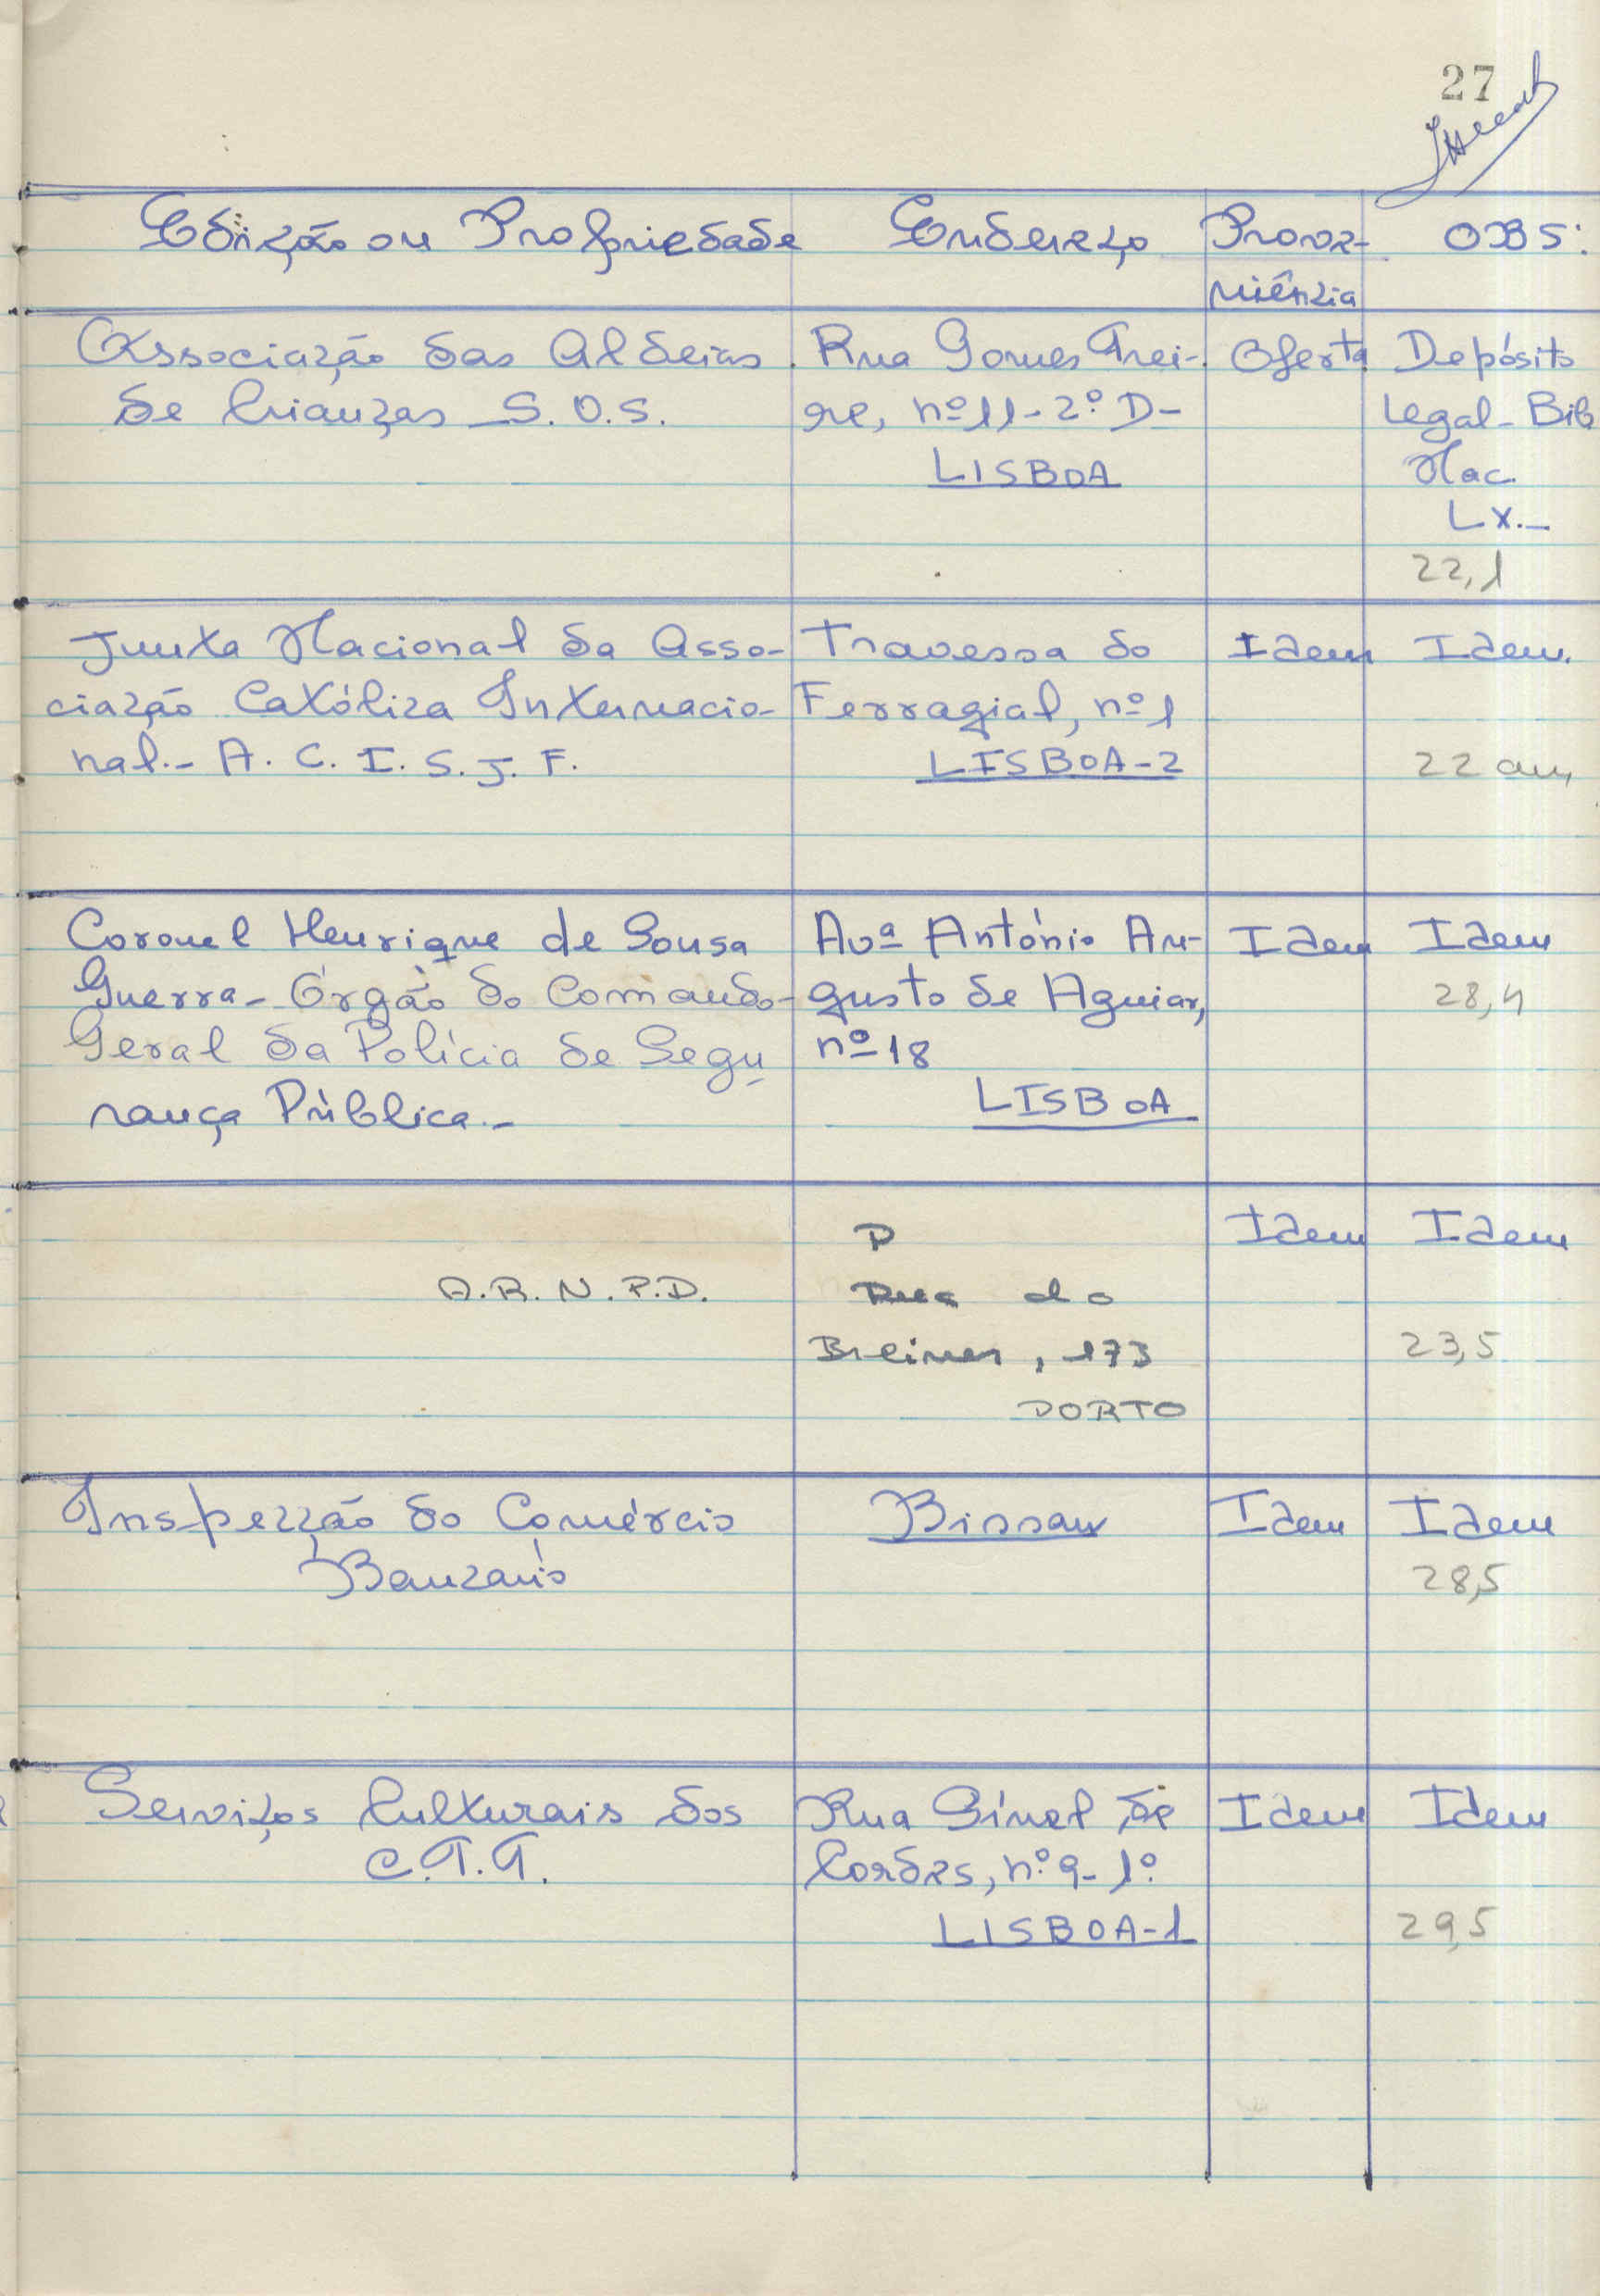 27
Edição ou Propriedade
Endereço
Prove-
niência
OBS:
Associação das Aldeias
de Crianças S.O.S.
Rua Gomes Frei-
re, nº 11-2º D-
LISBOA
Oferta
Depósito
Legal-Bib
Nac.
Lx.-
22,1
Junta Nacional da Asso-
ciação Católica Internacio-
nal.- A. C. I. S. J. F.
Travessa do
Ferragial, nº 1
LISBOA-2
Idem
Idem.
22 cm,
Coronel Henrique de Sousa
Guerra- Órgão do Comando-
Geral da Polícia de Segu-
rança Pública.-
Avª António Au-
gusto de Aguiar,
nº 18
LISBOA
Idem
Idem
28,4
A.R.N.P.D.
P
Rua do
Breiner, 173
PORTO
Idem
Idem
23,5
Inspecção do Comércio
Bancário
Bissau
Idem
Idem
28,5
Serviços Culturais dos
C.T.T.
Rua Sinel de
Cordes, nº 9-1º
LISBOA-1
Idem
Idem
29,5